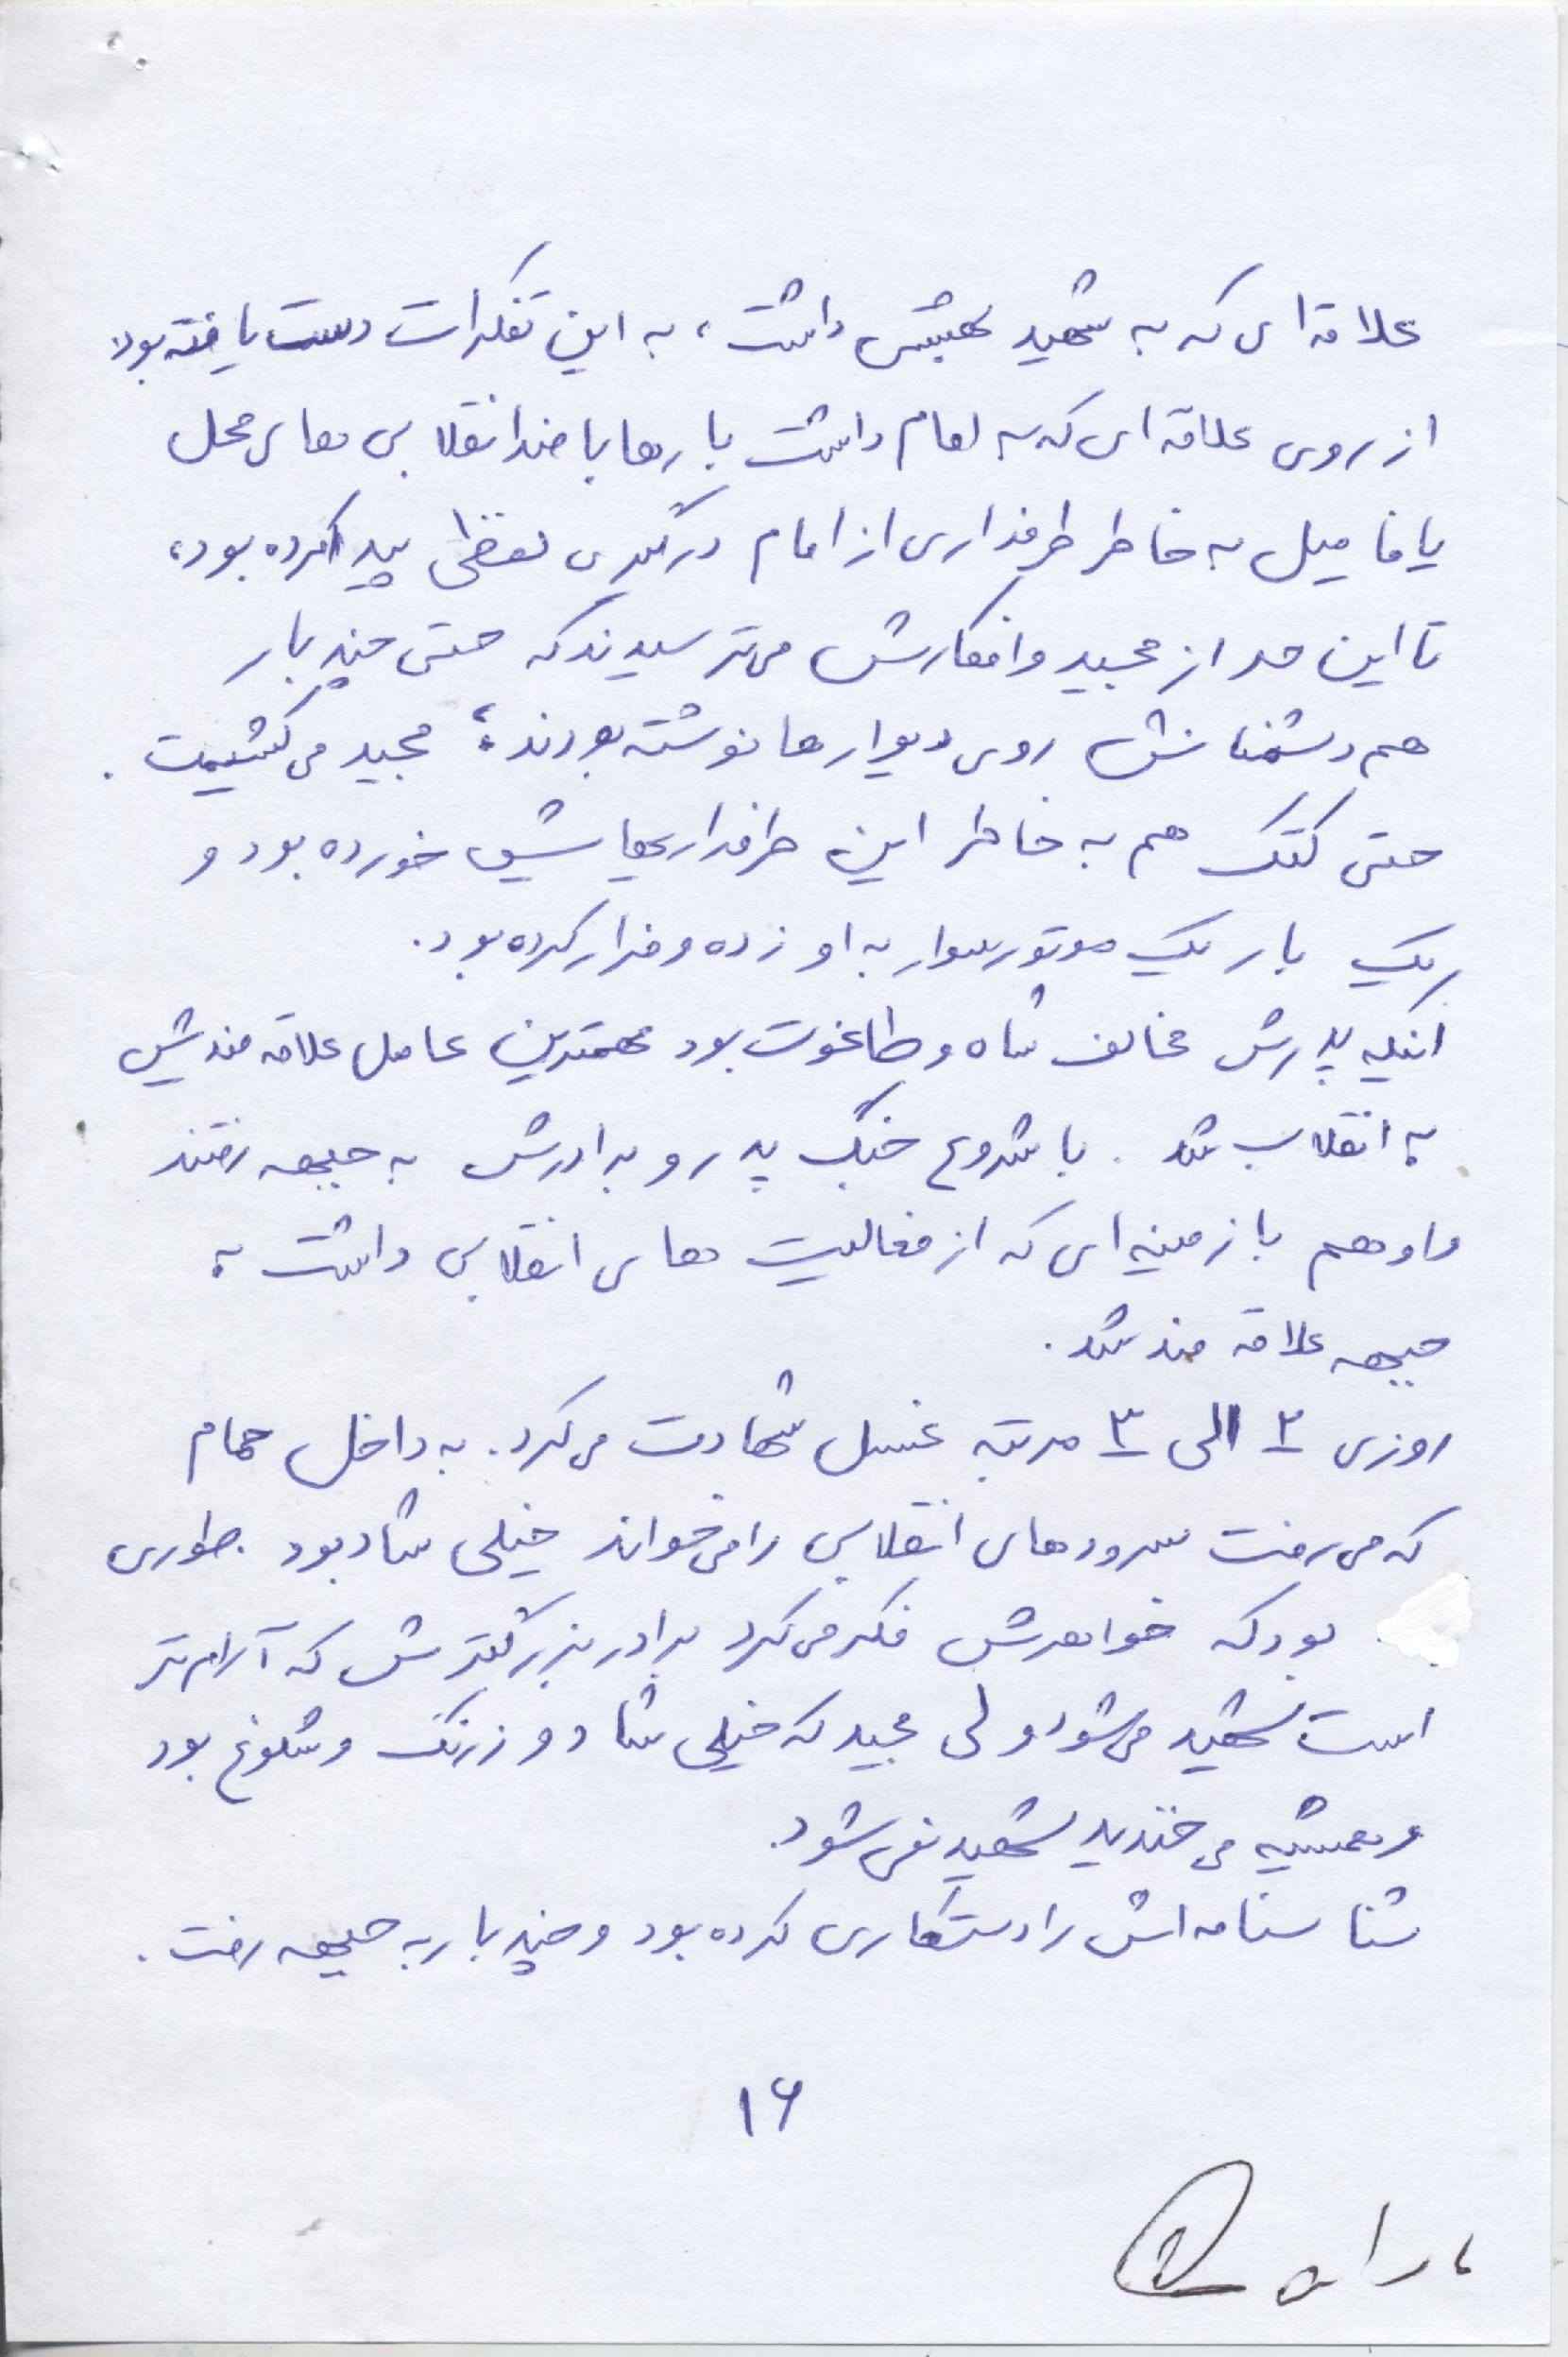 علاقه ای که به شهید بهشتی داشت، به این تفکرات دست یافته بود
از روی علاقه ای که به امام داشت بارها با ضد انقلابی های محل
یا فامیل به خاطر طرفداری از امام درگیری لفظی پیدا کرده بود،
تا این حد از مجید و افکارش می ترسیدند که حتی چند بار
هم دشمنانش روی دیوارها نوشته بودند؛ مجید می کشیمت.
حتی کتک هم به خاطر این طرفداریهایش خورده بود و
یک بار یک موتور سوار به او زده و فرار کرده بود.
اینکه پدرش مخالف شاه و طاغوت بود مهمترین عامل علاقه مندیش
به انقلاب شد. با شروع جنگ پدر و برادرش به جبهه رفتند
و او هم با زمینه ای که از فعالیت های انقلابی داشت به
جبهه علاقه مند شد.
روزی ۲ الی ۳ مرتبه غسل شهادت می کرد. به داخل حمام
که می رفت سرودهای انقلابی را می خواند خیلی شاد بود. طوری
بود که خواهرش فکر می کرد برادر بزرگترش که آرام تر
است شهید می شود ولی مجید که خیلی شاد و زرنگ و شلوغ بود
و همیشه می خندید شهید نمی شود.
شناسنامه اش را دستکاری کرده بود و چند بار به جبهه رفت.
۱۶